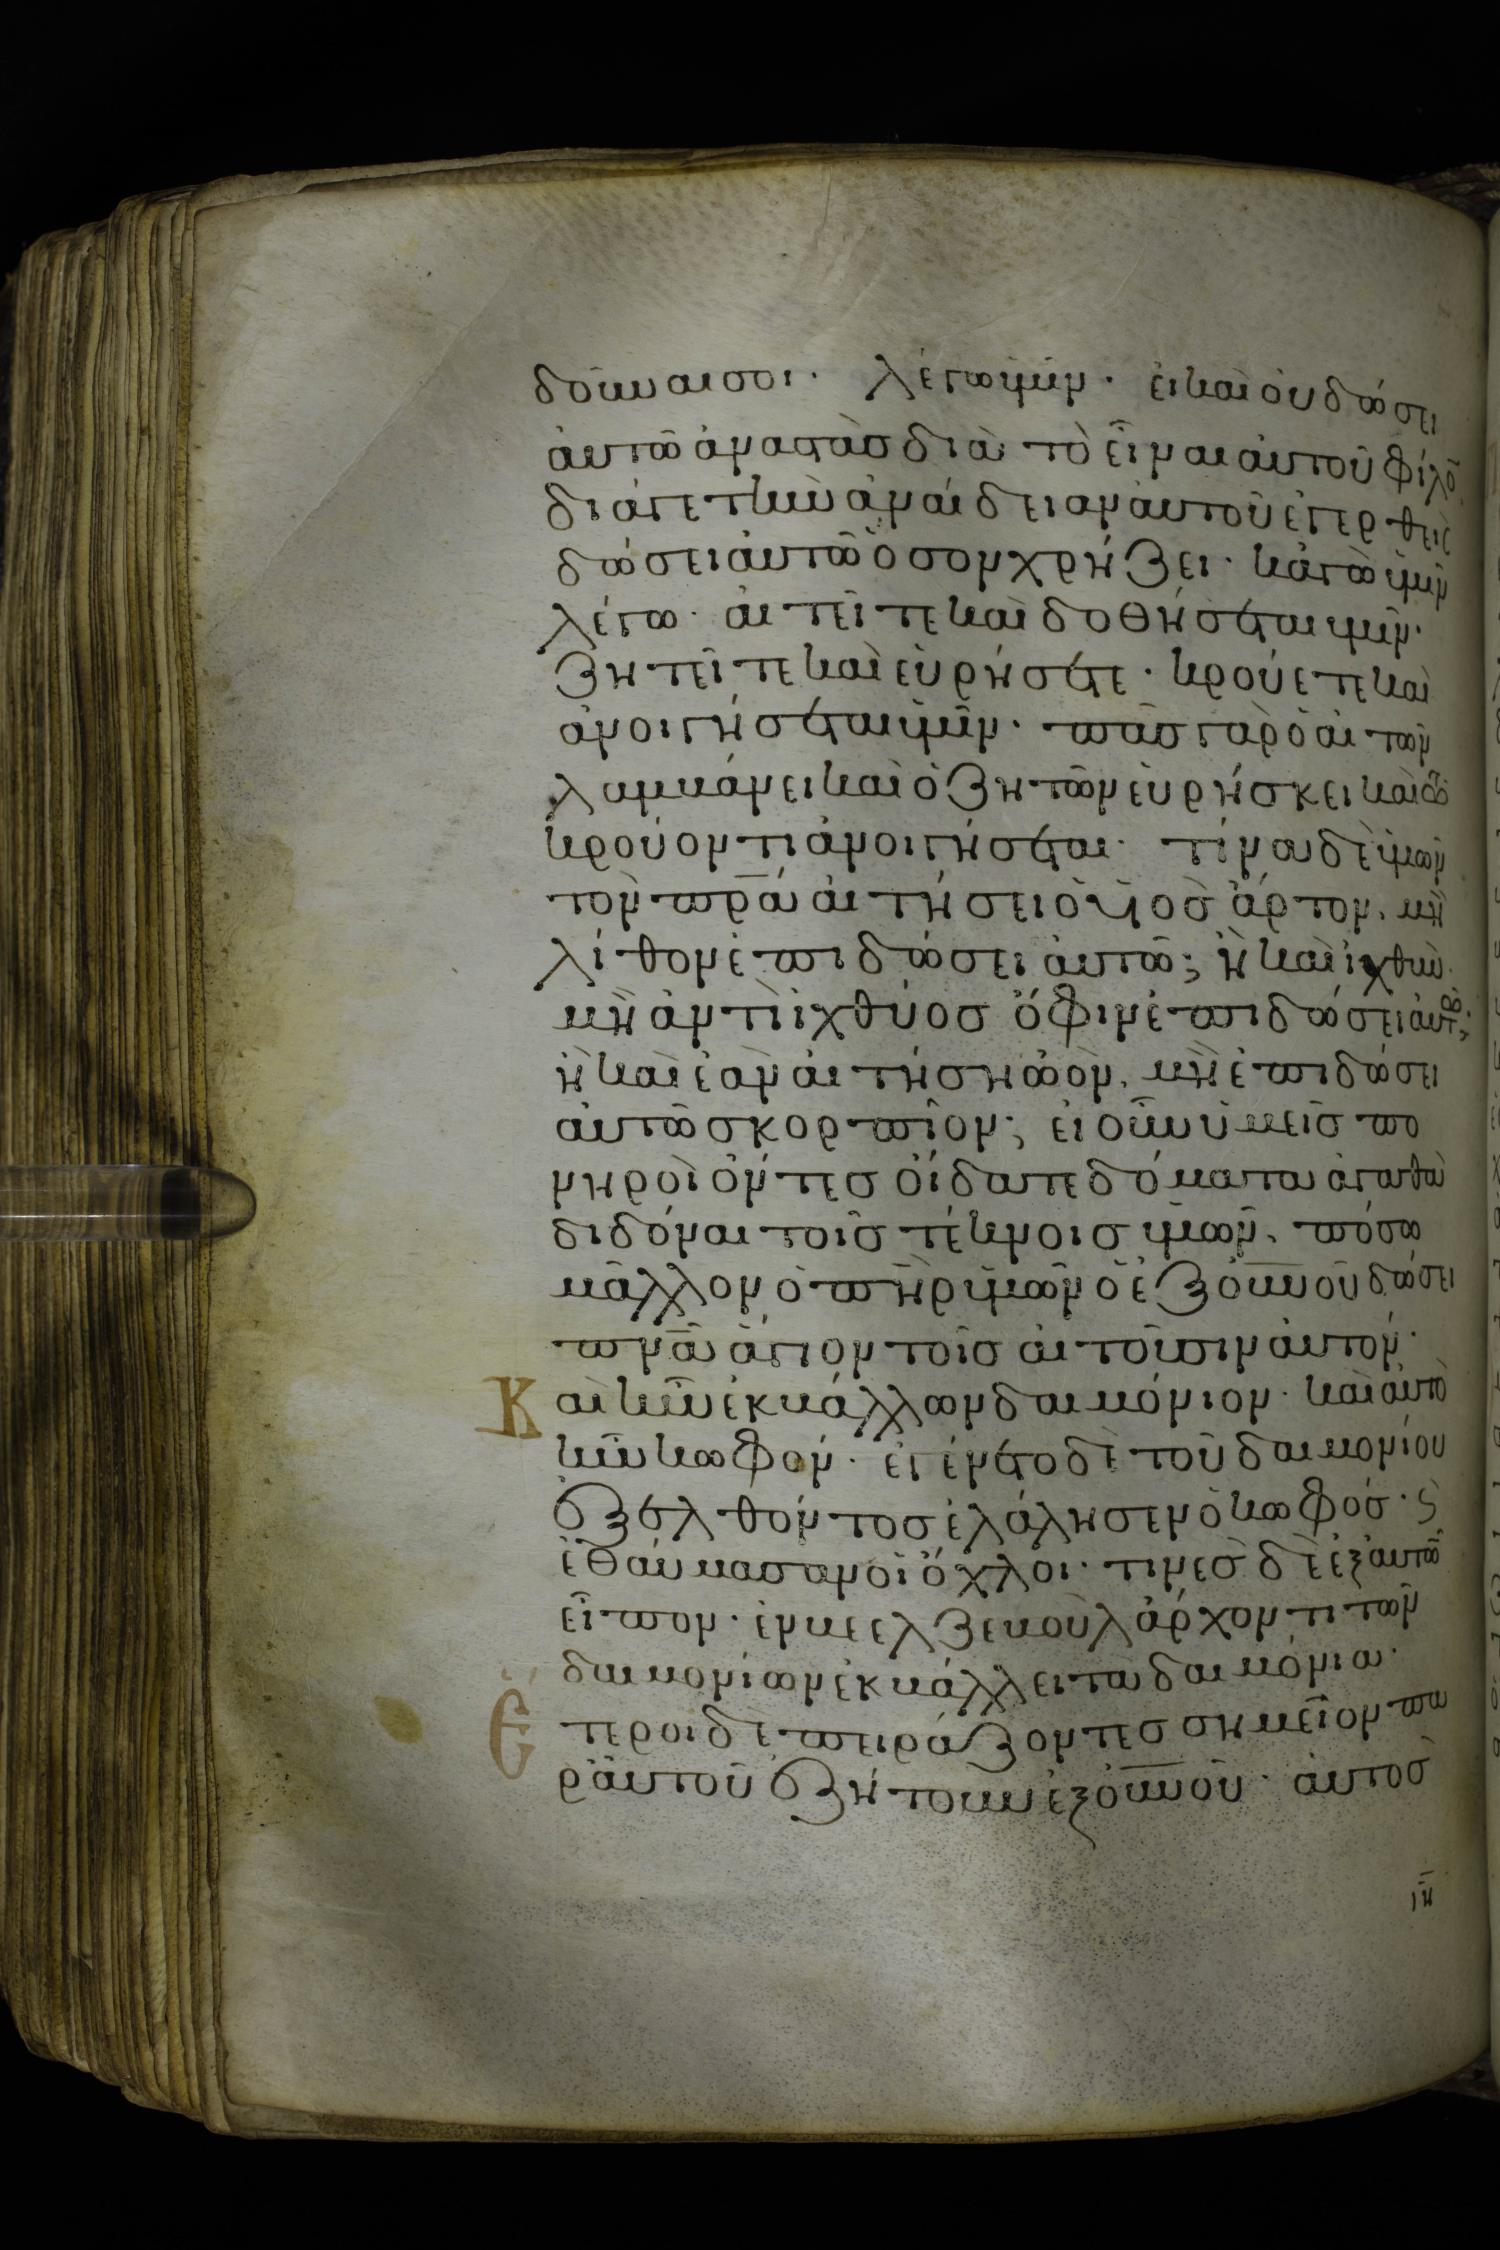 δοῦναι σοι· λέγω ὑμῖν· εἰ καὶ οὐ δώσει
αὐτῶ ἀναστὰς διὰ τὸ εἶναι αὐτοῦ φίλο
διά γε τὴν ἀναίδειαν αὐτοῦ ἐγερθεὶς
δώσει αὐτῶ ὅσον χρήζει· κἀγὼ ὑμῖν
λέγω· αἰτεῖτε καὶ δοθήσεται ὑμῖν·
ζητεῖτε καὶ εὑρήσετε· κρούετε καὶ
ἀνοιγήσεται ὑμῖν· πᾶς γὰρ ὁ αἰτῶν
λαμβάνει καὶ ὁ ζητῶν εὑρήσκει καὶ τῶ
κρούοντι ἀνοιγήσεται· τίνα δὲ ὑμῶν
τὸν πρ̅α αἰτήσει ὁ υἱὸς ἄρτον, μὴ
λίθον ἐπιδώσει αὐτῶ; ἢ καὶ ἰχθὺν
μὴ ἀντὶ ἰχθύος ὄφιν ἐπιδώσει αὐτῶ;
ἢ καὶ ἐὰν αἰτήση ὠὸν, μὴ ἐπιδώσει
αὐτῶ σκορπίον; εἰ οὖν ὑμεῖς πο
νηροὶ ὄντες οἴδατε δόματα ἀγαθὰ
διδόναι τοῖς τέκνοις ὑμῶν, πόσω
μᾶλλον ὁ πη̅ρ ὑμῶν ὁ ἐξ ο̅υ̅ν̅ο̅ῦ δώσει
πν̅α ἅγιον τοῖς αἰτοῦσιν αὐτόν·
Καὶ ἦν ἐκβάλλων δαιμόνιον· καὶ αὐτὸ
ἦν κωφόν· ἐγένετο δὲ τοῦ δαιμονίου
ἐξελθόντος ἐλάλησεν ὁ κωφός· ϛ
ἐθαύμασαν οἱ ὄχλοι· τινὲς δὲ ἐξ αὐτῶ
εἶπον· ἐν βεελζεβοὺλ ἄρχοντι τῶν
δαιμονίων ἐκβάλλει τὰ δαιμόνια·
Ἕτεροι δὲ πειράζοντες σημεῖον πα
ρ' αὐτοῦ ἐζήτουν ἐξ ο̅υ̅ν̅ο̅ῦ· αὐτὸς